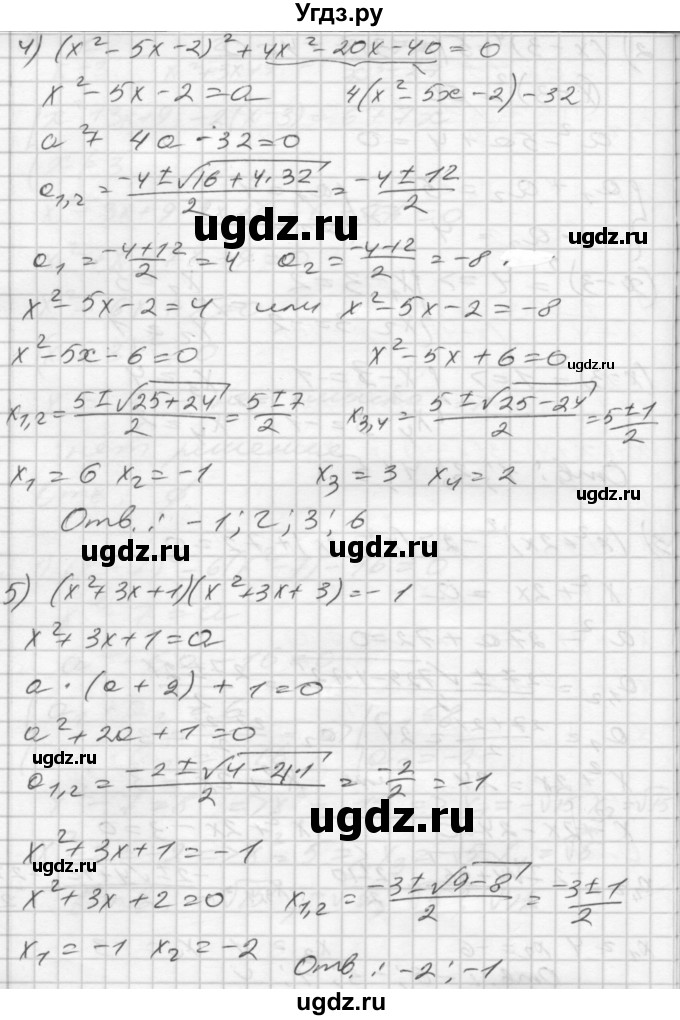 Угдз.ру
4) (x² - 5x - 2)² + 4x² - 20x - 40 = 0
x² - 5x - 2 = a 4(x² - 5x - 2) - 32
a² + 4a - 32 = 0
a₁,₂ = (-4 ± √(16 + 4·32))/2 = (-4 ± 12)/2
ugdz.ru
ugdz.ru
a₁ = (-4+12)/2 = 4 a₂ = (-4-12)/2 = -8.
x² - 5x - 2 = 4 или x² - 5x - 2 = -8
x² - 5x - 6 = 0 x² - 5x + 6 = 0
ugdz.ru
x₁,₂ = (5 ± √(25+24))/2 = (5 ± 7)/2 x₃,₄ = (5 ± √(25-24))/2 = (5 ± 1)/2
x₁ = 6 x₂ = -1 x₃ = 3 x₄ = 2
ugdz.ru
Отв.: -1; 2; 3; 6
ugdz.ru
5) (x² + 3x + 1)(x² + 3x + 3) = -1
x² + 3x + 1 = a
a · (a + 2) + 1 = 0
a² + 2a + 1 = 0
ugdz.ru
a₁,₂ = (-2 ± √(4 - 4·1))/2 = -2/2 = -1
ugdz.ru
x² + 3x + 1 = -1
ugdz.ru
x² + 3x + 2 = 0 x₁,₂ = (-3 ± √(9-8))/2 = (-3 ± 1)/2
x₁ = -1 x₂ = -2
Отв.: -2; -1
ugdz.ru